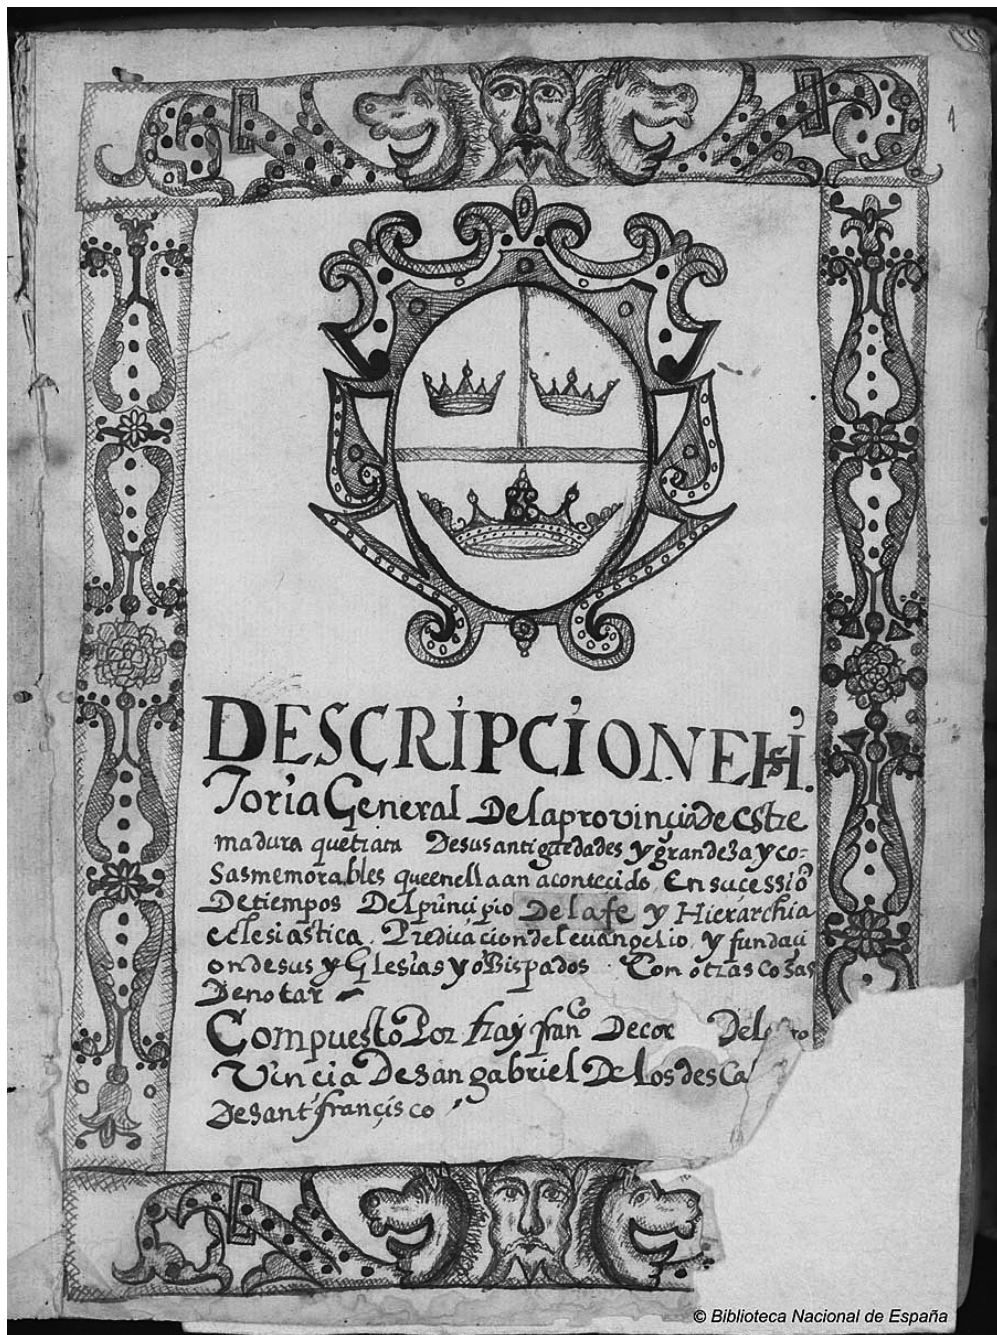 1
DESCRIPCION E HIS.
Toria General De la provinçia de estre
madura que trata De sus antiguedades y grandeza y co-
sas memorables que en ella an acontecido, En sucessiõ
De tiempos Del prinçipio De la fe y Hierarchia
eclesiastica. Predicacion del euangelio, y fundaci
on de sus yGlesias y oBispados. Con otras cosas
De notar
Compuesto Por fray franco De cor Dela
vincia De san gabriel De los desca
De sant françisco
© Biblioteca Nacional de España